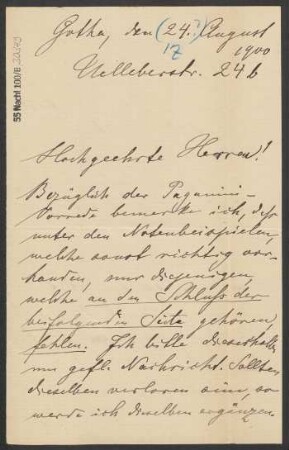 55 Nachl 100/B
Gotha, den (24.?) August
17
1900
Uelleberstr. 24 b
Hochgeehrte Herren!
Bezüglich der Paganini-
Vorrede bemerke ich, daß
unter den Notenbeispielen,
welche sonst richtig vor-
handen, nur diejenigen,
welche an den Schluß der
beifolgenden Seite gehören,
fehlen. Ich bitte dieserhalb
um gefl. Nachricht. Sollten
dieselben verloren sein, so
werde ich dieselben ergänzen.